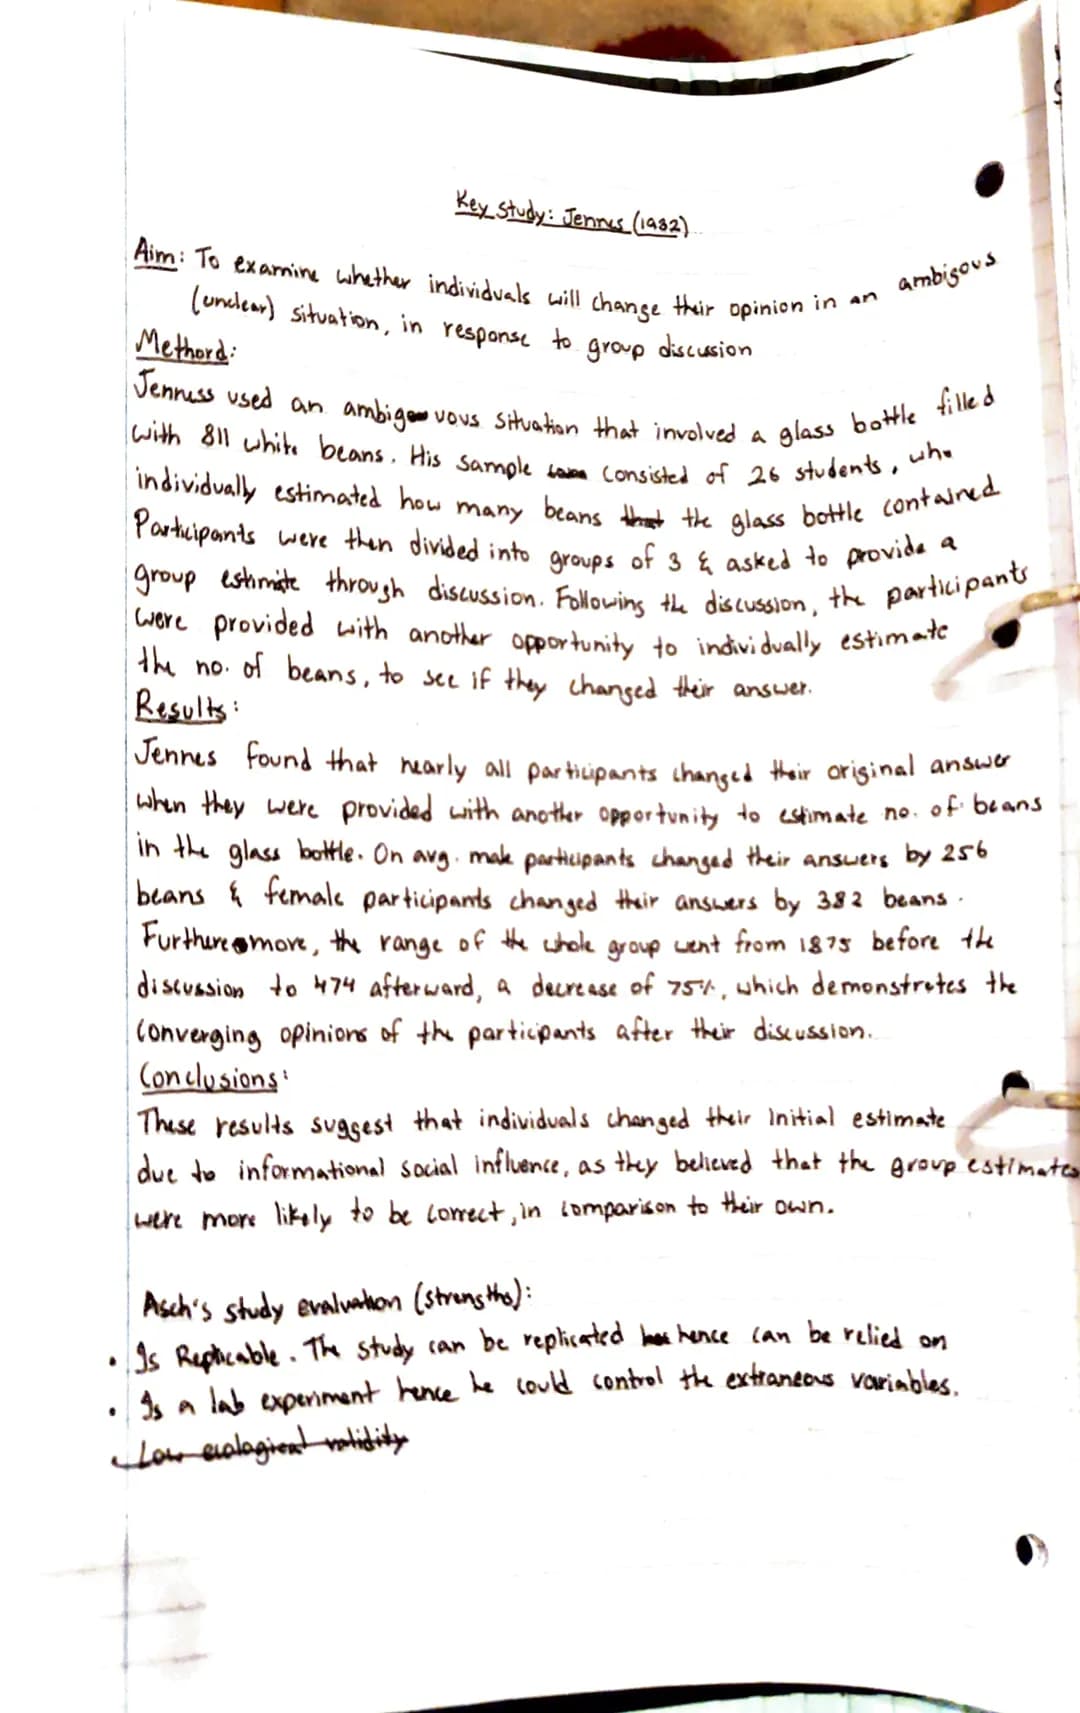 Key study: Jennes (1932)
Aim: To examine whether individuals will change their opinion in an ambigous
(unclear) situation, in response to group discussion
Methord:
Jenness used an ambiguous situation that involved a glass bottle filled
with 811 white beans. His sample consisted of 26 students, who
individually estimated how many beans that the glass bottle contained
Participants were then divided into groups of 3 & asked to provide a
group estimate through discussion. Following the discussion, the participants
were provided with another opportunity to individually estimate
the no. of beans, to see if they changed their answer.
Results:
Jennes found that nearly all participants changed their original answer
when they were provided with another opportunity to estimate no. of beans
in the glass bottle. On avg. male participants changed their answers by 256
beans & female participants changed their answers by 382 beans.
Furtheremore, the range of the whole group went from 1875 before the
discussion to 474 afterward, a decrease of 75%, which demonstrates the
converging opinions of the participants after their discussion.
Conclusions:
These results suggest that individuals changed their initial estimate
due to informational social influence, as they believed that the group estimates
were more likely to be correct, in comparison to their own.
Asch's study evaluation (strengths):
• Is Replicable. The study can be replicated has hence can be relied on
• Is a lab experiment hence he could control the extraneous variables.
• Low ecological validity